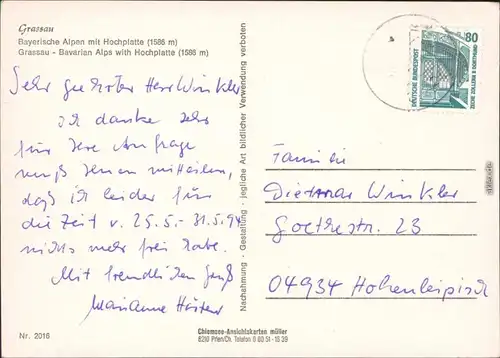 Grassau
Bayerische Alpen mit Hochplatte (1586 m)
Grassau - Bavarian Alps with Hochplatte (1586 m)
Sehr geehrter Herr Winkler
ich danke sehr
für Ihre Anfrage
muß Ihnen mitteilen,
daß ich leider für
die Zeit v. 25.5.- 31.5.94
nichts mehr frei habe.
Mit freundlichen Gruß
Marianne
Nr. 2016
Nachahmung - Gestaltung - jegliche Art bildlicher Verwendung verboten
Chiemsee-Ansichtskarten müller
8210 Prien/Ch. Telefon 0 80 51 - 16 39
80
DEUTSCHE BUNDESPOST
ZECHE ZOLLERN II DORTMUND
Familie
Dietmar Winkler
Goethestr. 23
04934 Hohenleipisch